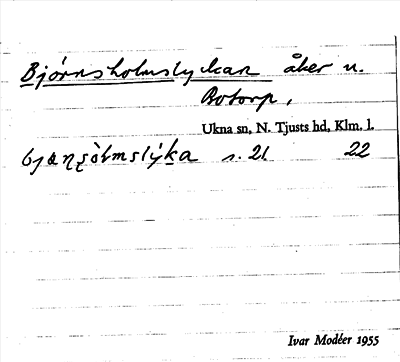 Björnsholmslyckan åker u.
Botorp,
Ukna sn, N. Tjusts hd, Klm. l.
s. 21. 22
Ivar Modéer 1955